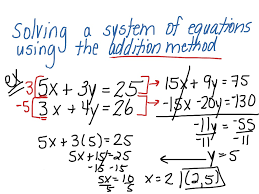 Solving a system of equations
using the addition method
ex
3[5x + 3y = 25] → 15x + 9y = 75
-5[3x + 4y = 26] → -15x - 20y = -130
-11y = -55
-11 -11
5x + 3(5) = 25
← y = 5
5x + 15 = 25
-15 -15
5x = 10
5 5
x = 2 (2,5)